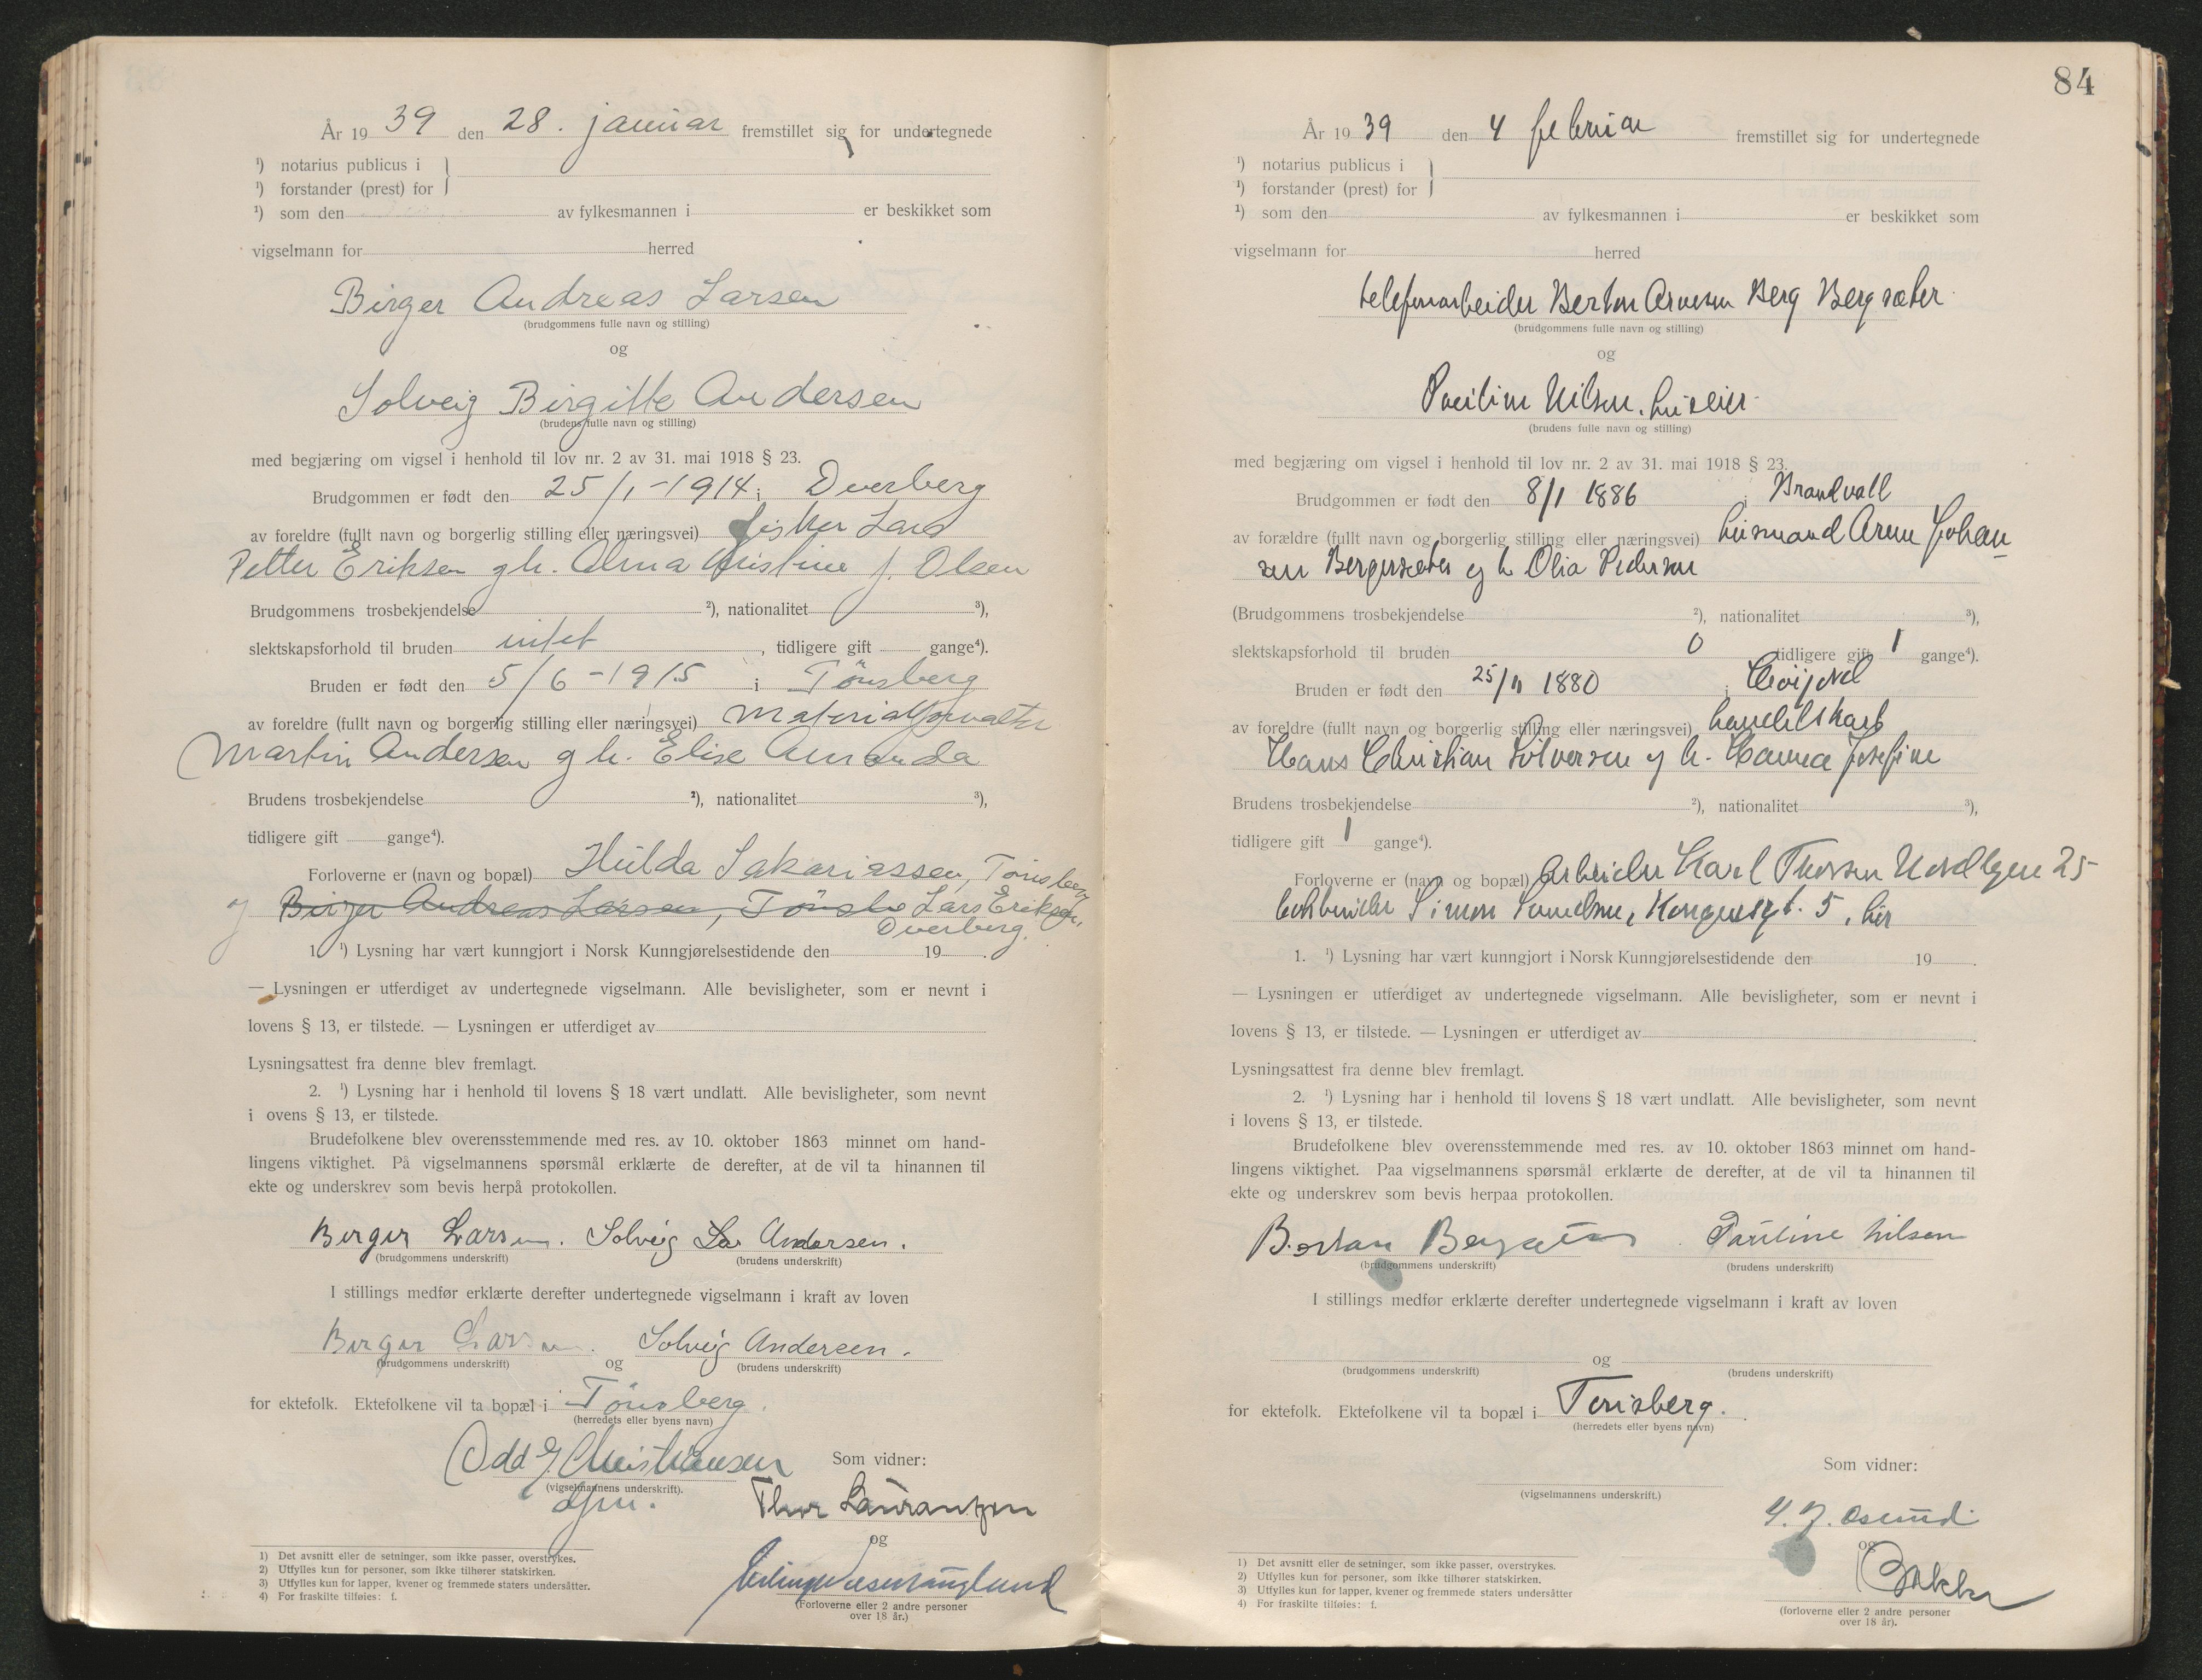 År 19 39 den 28. januar fremstillet sig for undertegnede
¹) notarius publicus i
¹) forstander (prest) for
¹) som den av fylkesmannen i er beskikket som
vigselmann for herred
Birger Andreas Larsen
(brudgommens fulle navn og stilling)
og
Solveig Birgitte Andersen
(brudens fulle navn og stilling)
med begjæring om vigsel i henhold til lov nr. 2 av 31. mai 1918 § 23.
Brudgommen er født den 25/1-1914 i Dverberg
av foreldre (fullt navn og borgerlig stilling eller næringsvei) fisker Lars
Petter Eriksen g.h. Alma Kristine f. Olsen
Brudgommens trosbekjendelse ²), nationalitet ³),
slektskapsforhold til bruden intet, tidligere gift gange⁴).
Bruden er født den 5/6-1915 i Tönsberg
av foreldre (fullt navn og borgerlig stilling eller næringsvei) Materialforvalter
Martin Andersen g.h. Elise Amanda
Brudens trosbekjendelse ²), nationalitet ³),
tidligere gift gange⁴).
Forloverne er (navn og bopæl) Hulda Sakariassen, Tönsberg
og Birger Andreas Larsen, Tönsb Lars Eriksen,
Dverberg.
1. ¹) Lysning har vært kunngjort i Norsk Kunngjørelsestidende den 19 .
— Lysningen er utferdiget av undertegnede vigselmann. Alle bevisligheter, som er nevnt i
lovens § 13, er tilstede. — Lysningen er utferdiget av
Lysningsattest fra denne blev fremlagt.
2. ¹) Lysning har i henhold til lovens § 18 vært undlatt. Alle bevisligheter, som nevnt
i ovens § 13, er tilstede.
Brudefolkene blev overensstemmende med res. av 10. oktober 1863 minnet om hand-
lingens viktighet. På vigselmannens spørsmål erklærte de derefter, at de vil ta hinannen til
ekte og underskrev som bevis herpå protokollen.
Birger Larsen. Solveig La Andersen.
(brudgommens underskrift) (brudens underskrift)
I stillings medfør erklærte derefter undertegnede vigselmann i kraft av loven
Birger Larsen. Solveig Andersen.
(brudgommens underskrift) og (brudens underskrift)
for ektefolk. Ektefolkene vil ta bopæl i Tönsberg.
(herredets eller byens navn)
Odd Christiansen Som vidner:
(vigselmannens underskrift).
Thor Laurantzen
og
(Forloverne eller 2 andre personer
over 18 år.)
1) Det avsnitt eller de setninger, som ikke passer, overstrykes.
2) Utfylles kun for personer, som ikke tilhører statskirken.
3) Utfylles kun for lapper, kvener og fremmede staters undersåtter.
4) For fraskilte tilføies: f.
84
År 19 39 den 4 februar fremstillet sig for undertegnede
¹) notarius publicus i
¹) forstander (prest) for
¹) som den av fylkesmannen i er beskikket som
vigselmann for herred
telefonarbeider Berton Arnesen Berg Bergsæter
(brudgommens fulle navn og stilling)
og
Pauline Nilsen, huseier
(brudens fulle navn og stilling)
med begjæring om vigsel i henhold til lov nr. 2 av 31. mai 1918 § 23.
Brudgommen er født den 8/1 1886 i Brandvall
av forældre (fullt navn og borgerlig stilling eller næringsvei) husmand Arne Johan
sen Bergersæter og h Olia Pedersen
(Brudgommens trosbekjendelse ²), nationalitet ³),
slektskapsforhold til bruden 0 tidligere gift 1 gange⁴).
Bruden er født den 25/11 1880 i
av foreldre (fullt navn og borgerlig stilling eller næringsvei) handelskar
Hans Christian Sölversen og h. Hanna Josefine
Brudens trosbekjendelse ²), nationalitet ³),
tidligere gift 1 gange⁴).
Forloverne er (navn og bopæl) arbeider Karl Thorsen Nordbyen 25
Simon, Kongensgt. 5, her
1. ¹) Lysning har vært kunngjort i Norsk Kunngjørelsestidende den 19 .
— Lysningen er utferdiget av undertegnede vigselmann. Alle bevisligheter, som er nevnt i
lovens § 13, er tilstede. — Lysningen er utferdiget av
Lysningsattest fra denne blev fremlagt.
2. ¹) Lysning har i henhold til lovens § 18 vært undlatt. Alle bevisligheter, som nevnt
i lovens § 13, er tilstede.
Brudefolkene blev overensstemmende med res. av 10. oktober 1863 minnet om hand-
lingens viktighet. Paa vigselmannens spørsmål erklærte de derefter, at de vil ta hinannen til
ekte og underskrev som bevis herpaa protokollen.
Berton Bergsæter Pauline Nilsen
(brudgommens underskrift) (brudens underskrift)
I stillings medfør erklærte derefter undertegnede vigselmann i kraft av loven
og
(brudgommens underskrift) (brudens underskrift)
for ektefolk. Ektefolkene vil ta bopæl i Tönsberg.
(herredets eller byens navn)
Som vidner:
(vigselmannens underskrift.)
og
Bakke
(forloverne eller 2 andre personer
over 18 år).
1) Det avsnitt eller de setninger, som ikke passer, overstrykes.
2) Utfylles kun for personer, som ikke tilhører statskirken.
3) Utfylles kun for lapper, kvener og fremmede staters undersåtter
4) For fraskilte tilføies: f.